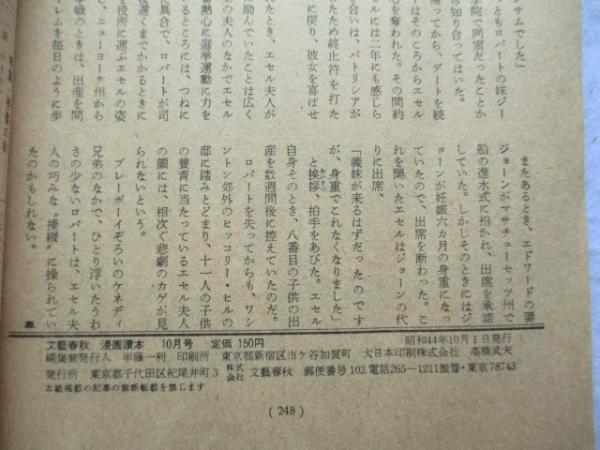 サムでした」
ともロバートの妹ジー
学院で同室だったことか
ら知り合ってはいた。
帰ってから、デートを続
はそのころからエセル
心を奪われた。その間約
ルには二年にも感じら
合いは、パトリシアが
たため終止符を打た
に戻り、彼女を喜ばせ
たとき、エセル夫人が
励んでいたことは広く
の夫人のなかでエセル
熱心に選挙運動に力を
るところには、つねに
具合で、ロバートが司
遅くまでかかるときに
を役所に運ぶエセルの姿
し、ニューヨーク州から
戦のときは、出産を間
イレムを毎日のように歩
またあるとき、エドワードの妻
ジョーンがマサチューセッツ州で
船の進水式に招かれ、出席を承諾
していた。しかしそのときにはジ
ョーンが妊娠六カ月の身重になっ
ていたので、出席を断わった。こ
れを聞いたエセルはジョーンの代
りに出席、
「義妹が来るはずだったのです
が、身重でこれなくなりました」
と挨拶、拍手をあびた。エセル
自身そのとき、八番目の子供の出
産を数週間後に控えていたのだ。
ロバートを失ってからも、ワシ
ントン郊外のヒッコリー・ヒルの
邸に踏みとどまり、十一人の子供
の養育に当たっているエセル夫人
の顔には、相次ぐ悲劇のカゲが見
られないという。
プレーボーイぞろいのケネディ
兄弟のなかで、ひとり浮いたうわ
さの少ないロバートは、エセル夫
人の巧みな〝操縦〟に操られてい
たのかもしれない。
文藝春秋 漫画讀本 10月号 定価 150円 昭和44年10月1日発行
編集兼発行人 半藤一利 印刷所 東京都新宿区市ケ谷加賀町 大日本印刷株式会社 高橋武夫
発行所 東京都千代田区紀尾井町3 株式会社 文藝春秋 郵便番号102 電話265—1211 振替・東京78743
本誌掲載の記事の無断転載を禁じます
(248)